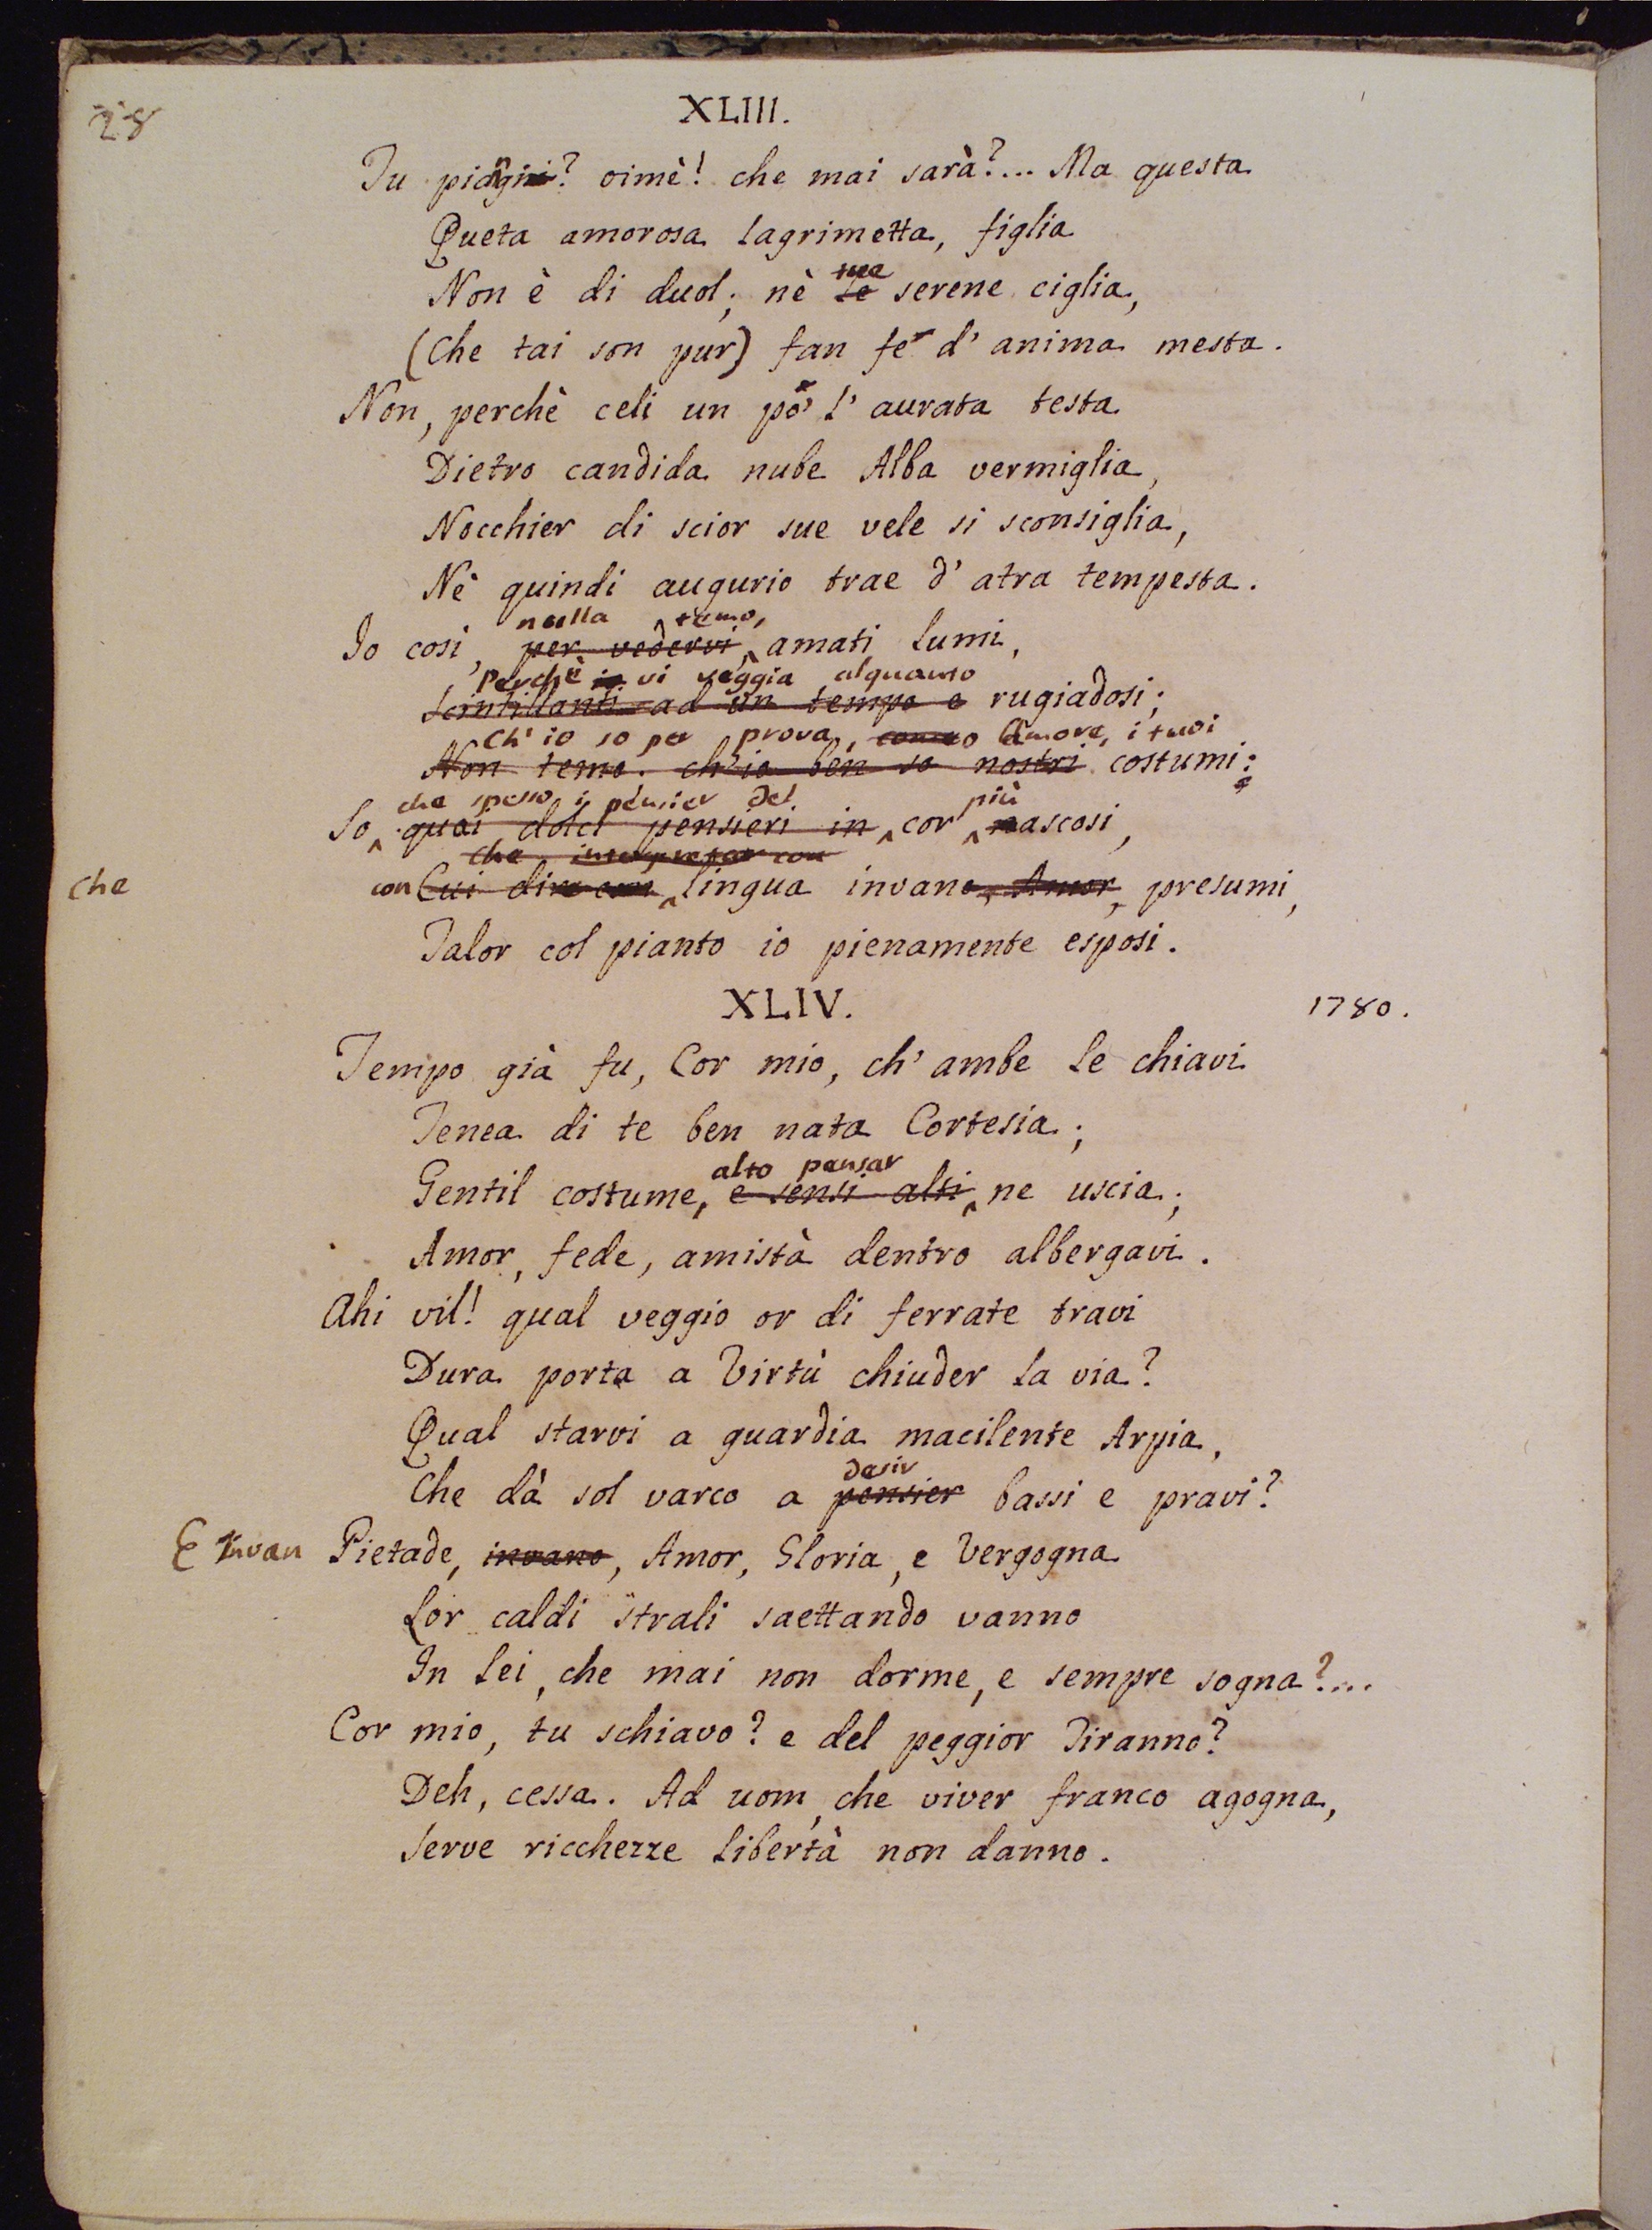 28
XLIII.
Tu piagni? oimè! che mai sarà?... Ma questa
Queta amorosa lagrimetta, figlia
tue
Non è di duol; nè le serene ciglia,
(Che tai son pur) fan fe d'anima mesta.
Non, perchè celi un po' l'aurata testa
Dietro candida nube Alba vermiglia,
Nocchier di scior sue vele si sconsiglia,
Nè quindi augurio trae d'atra tempesta.
nulla temo,
Io così, per vedervi, amati lumi,
Perchè io vi veggia alquanto
Scintillanti ad un tempo e rugiadosi;
Ch'io so per prova, Amore, i tuoi
Non temo. ch'io ben so nostri costumi:
che spesso i pensier del più
So quai dolci pensieri in cor nascosi,
che interpretar con
che con Cui dire con lingua invano, Amor, presumi,
Talor col pianto io pienamente esposi.
XLIV. 1780.
Tempo già fu, Cor mio, ch'ambe le chiavi
Tenea di te ben nata Cortesia;
alto pensar
Gentil costume, e sensi alti ne uscia;
Amor, fede, amistà dentro albergavi.
Ahi vil! qual veggio or di ferrate travi
Dura porta a Virtù chiuder la via?
Qual starvi a guardia macilente Arpia,
desir
Che dà sol varco a pensier bassi e pravi?
E invan Pietade, invano, Amor, Gloria, e Vergogna
Lor caldi strali saettando vanno
In lei, che mai non dorme, e sempre sogna?...
Cor mio, tu schiavo? e del peggior Tiranno?
Deh, cessa. Ad uom, che viver franco agogna,
Serve ricchezze libertà non danno.